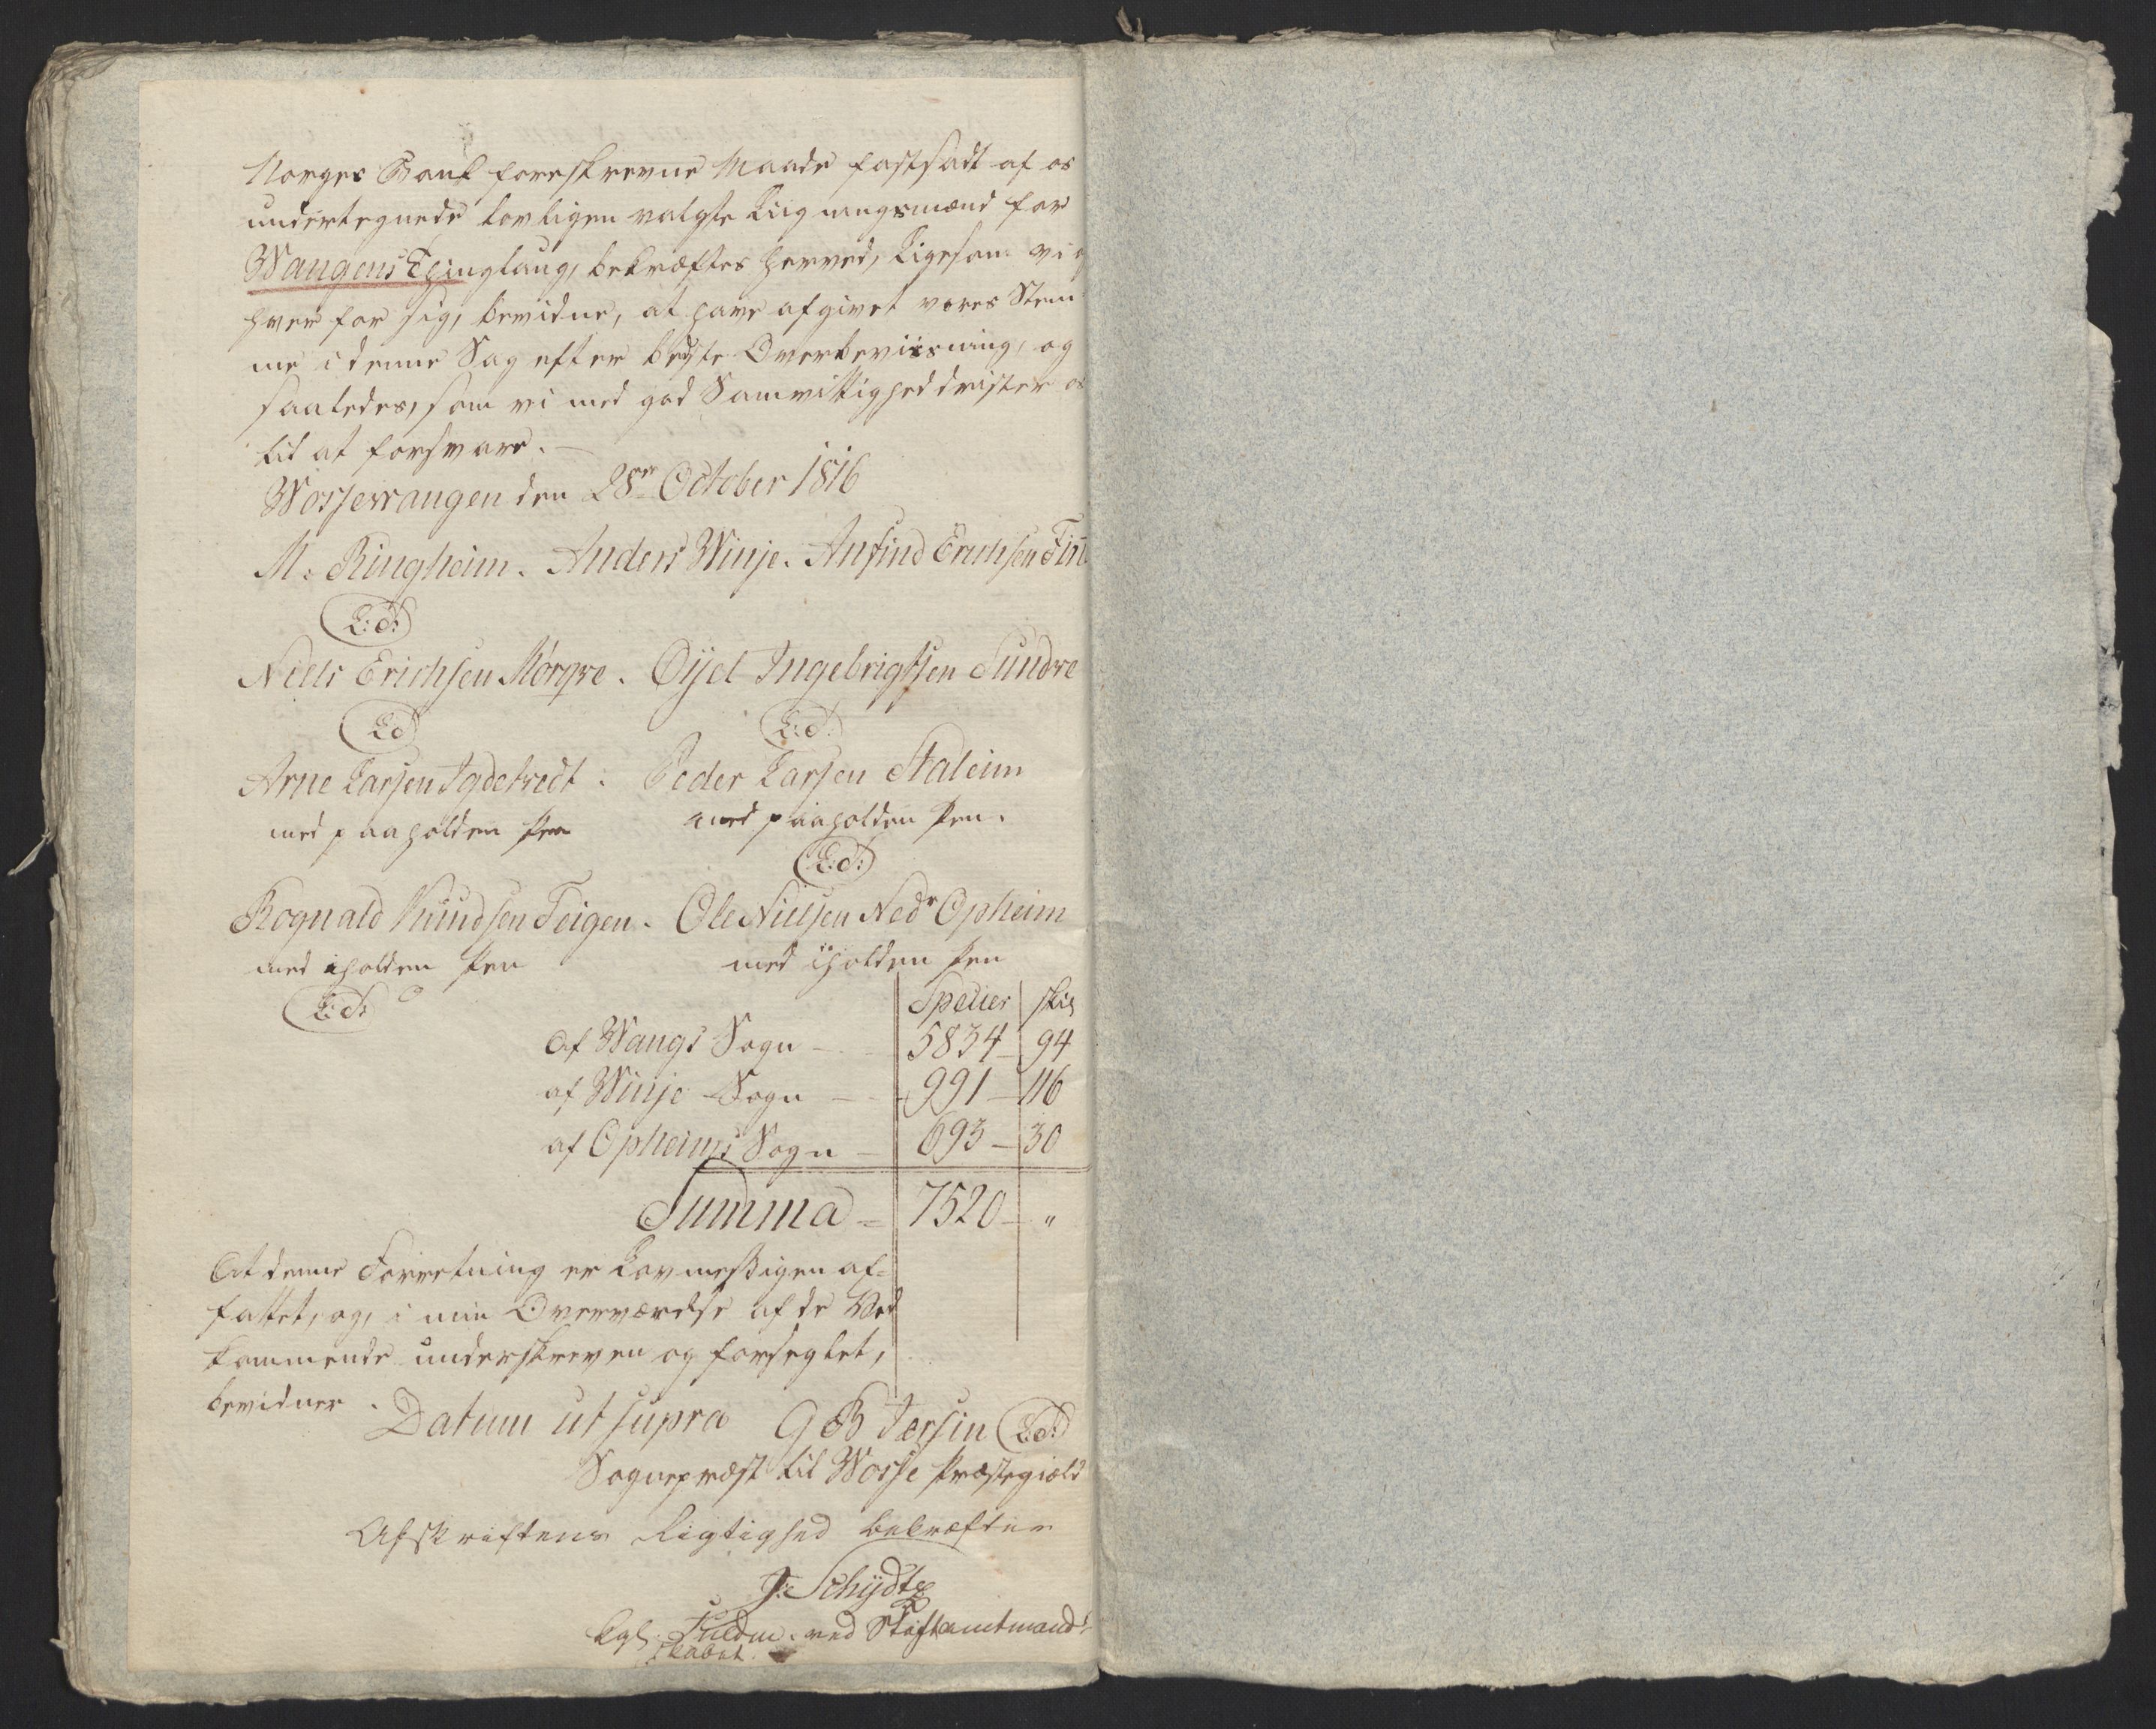 Norges Bank foreskrevne Maade fastsadt af os
undertegnede lovligen valgte Liigningsmænd for
Wangens Thinglaug, bekræftes herved, ligesom vi
hver for sig, bevidne, at have afgivet vores Stem-
me i denne Sag efter beste Overbeviisning, og
saaledes, som vi med god Samvittighed drister os
til at forsvare. —
Wossevangen den 28de October 1816
M: Ringheim. Anders Winje. Anfind Erichsen
L:S:
Niels Erichsen Mörqve. Ingebrigtsen Sundve
LS L:S:
Arne Larsen . Peder Larsen Staleim
med paaholden Pen med paaholden Pen.
L:S:
Rognald Knudsen Teigen. Ole Nielsen Nedr Opheim
med iholden Pen med iholden Pen
L:S:
Spetier skil
Af Wangs Sogn — 5834 — 94
af Winje Sogn — 991 — 116
af Opheims Sogn — 693 — 30
Summa = 7520 — "
At denne Forretning er Lovmessigen af-
fattet, og, i min Overværelse af de Ved
kommende underskreven og forseglet,
bevidner.
Datum ut supra G B Jersin L:S:
Sognepræst til Wosse Præstegield
Afskriftens Rigtighed bekræfter
J: Schydtz
kgl: Fuldm. ved Stiftamtmand-
skabet.